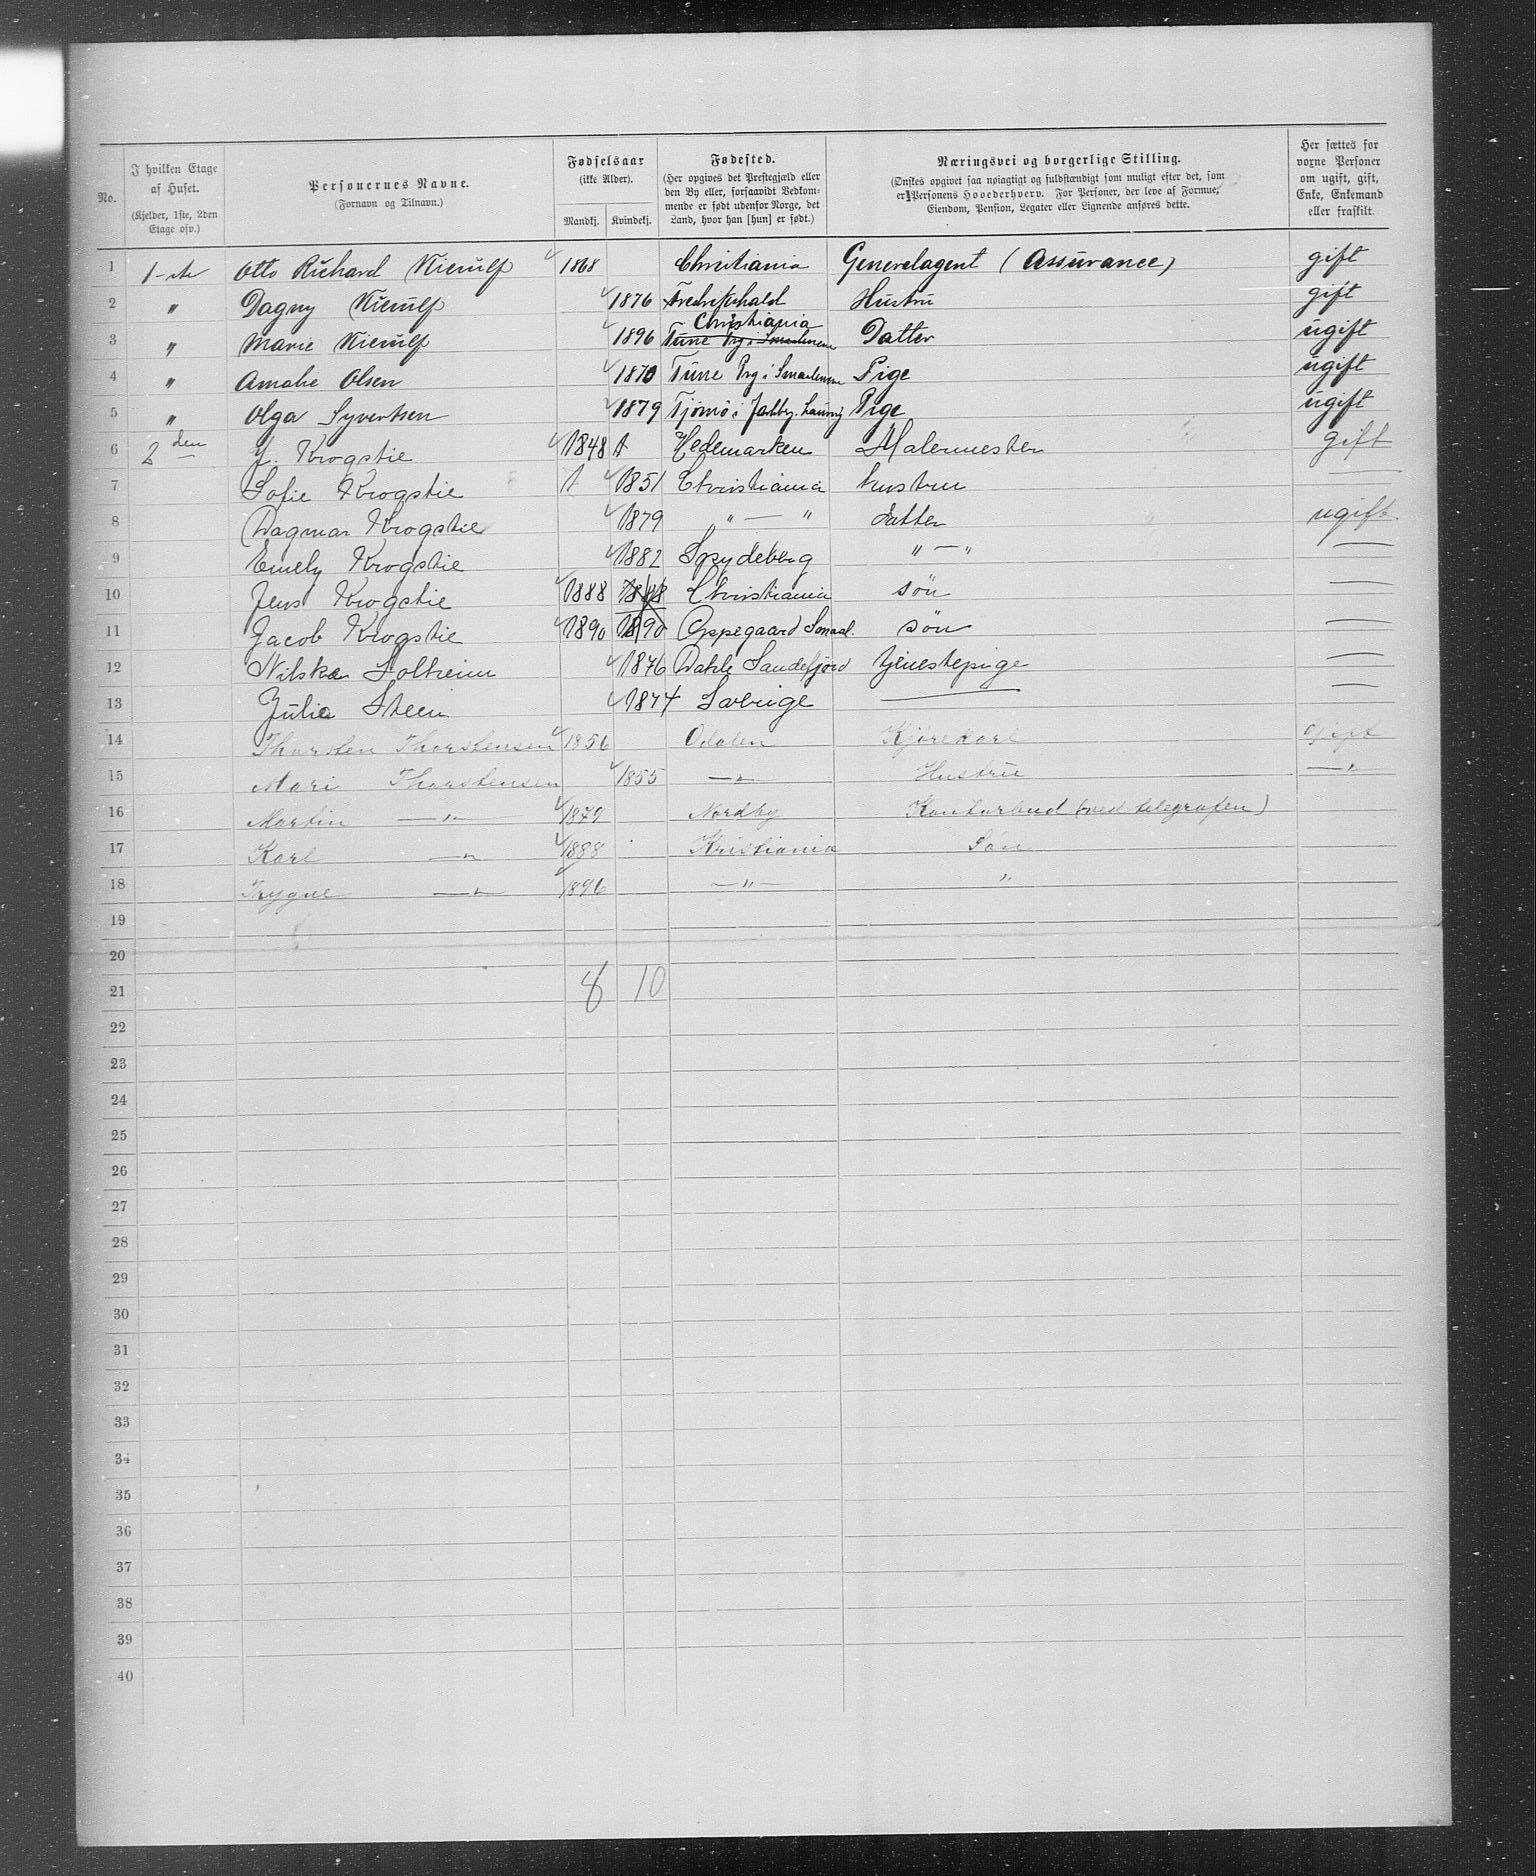 No. I hvilken Etage af Huset. (Kjelder, 1ste, 2den Etage osv.) Personernes Navne. (Fornavn og Tilnavn.) Fødselsaar (ikke Alder). Mandkj. Kvindekj. Fødested. (Her opgives det Prestegjæld eller den By eller, forsaavidt Vedkommende er født udenfor Norge, det Land, hvor han [hun] er født.) Næringsvei og borgerlige Stilling. (Ønskes opgivet saa nøiagtigt og fuldstændigt som muligt efter det, som er Personens Hovederhverv. For Personer, der leve af Formue, Eiendom, Pension, Legater eller Lignende anføres dette. Her sættes for voxne Personer om ugift, gift, Enke, Enkemand eller fraskilt.
1 1-ste Otto Richard Kierulf 1868 Christiania Generalagent (Assurance) gift
2 " Dagny Kierulf 1876 Fredrikshald Hustru gift
Christiania
3 " Marie Kierulf 1896 Tune Prg. i Smaalenene Datter ugift
4 " Amalie Olsen 1870 Tune Prg i Smaalenene Pige ugift
5 " Olga Syvertsen 1879 Tjømø i Pige ugift
6 2den Krogstie 1848 1 Hedemarken Malermester gift
7 Sofie Krogstie 1 1851 Christiania hustru —
8 Dagmar Krogstie 1879 " — " datter ugift
9 Emely Krogstie 1882 Spydeberg " — " —
10 Jens Krogstie 1888 1888 Christiania søn —
11 Jacob Krogstie 1890 1890 Oppegaard Smaal. søn —
12 Solheim 1876 Sandefjord tjenestepige —
13 Julie Steen 1874 Sverige — —
14 Thorsten Thorstensen 1856 Odalen Kjørekarl Gift
15 Mari Thorstensen 1855 —"— Hustru —"
16 Martin —"— 1879 Nordby Kontorbud (ved telegrafen)
17 Karl —"— 1888 Kristiania Søn
18 Trygve —"— 1896 —"— "
19
20
21 8 10
22
23
24
25
26
27
28
29
30
31
32
33
34
35
36
37
38
39
40